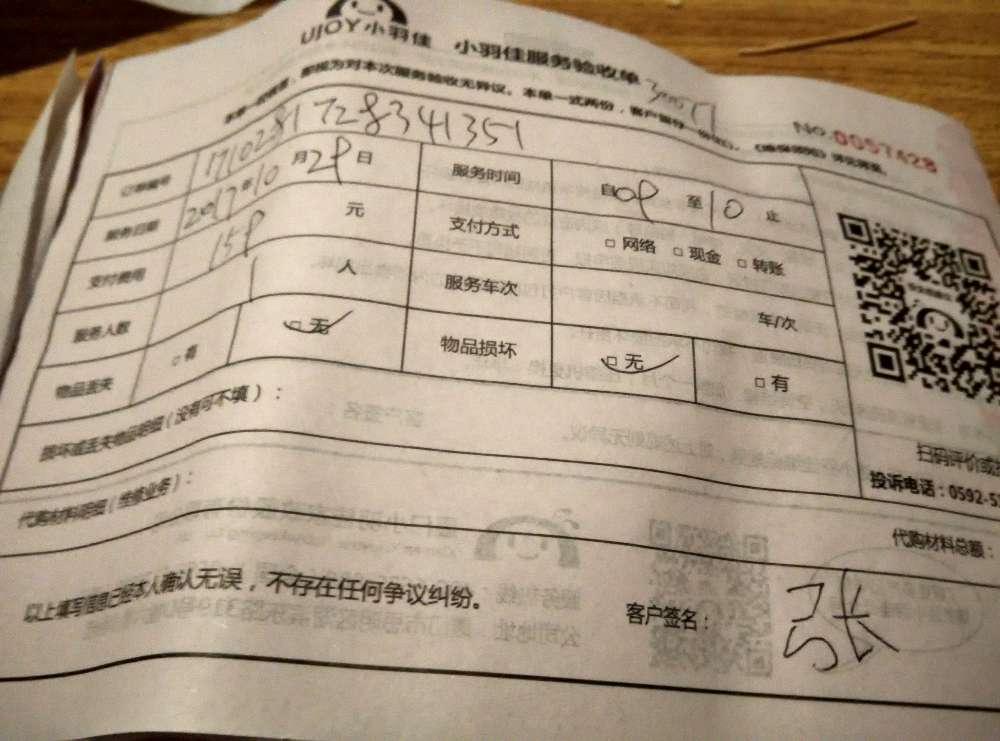 UJOY小羽佳 小羽佳服务验收单
即视为对本次服务验收无异议。本单一式两份，客户留存一份
NO.0057428
订单编号 17102381728341351
服务日期 2017年10月29日 服务时间 自09至10止
支付费用 159元 支付方式 □网络 □现金 □转账
服务人数 1人 服务车次 车/次
物品丢失 □有 □无 物品损坏 □无 □有
损坏或丢失物品明细（没有可不填）：
扫码评价或
投诉电话：0592-5
代购材料明细（维修业务）： 代购材料总额：
以上填写信息已经本人确认无误，不存在任何争议纠纷。 客户签名： 张